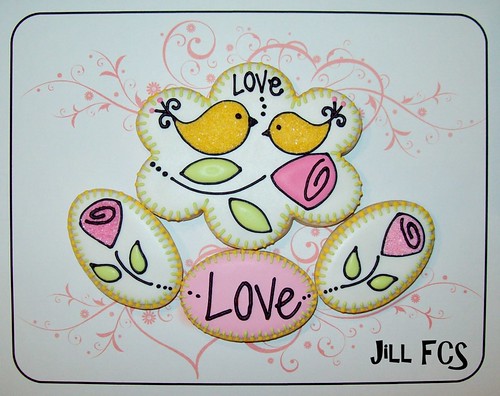 LOVE
LOVE
JiLL FCS